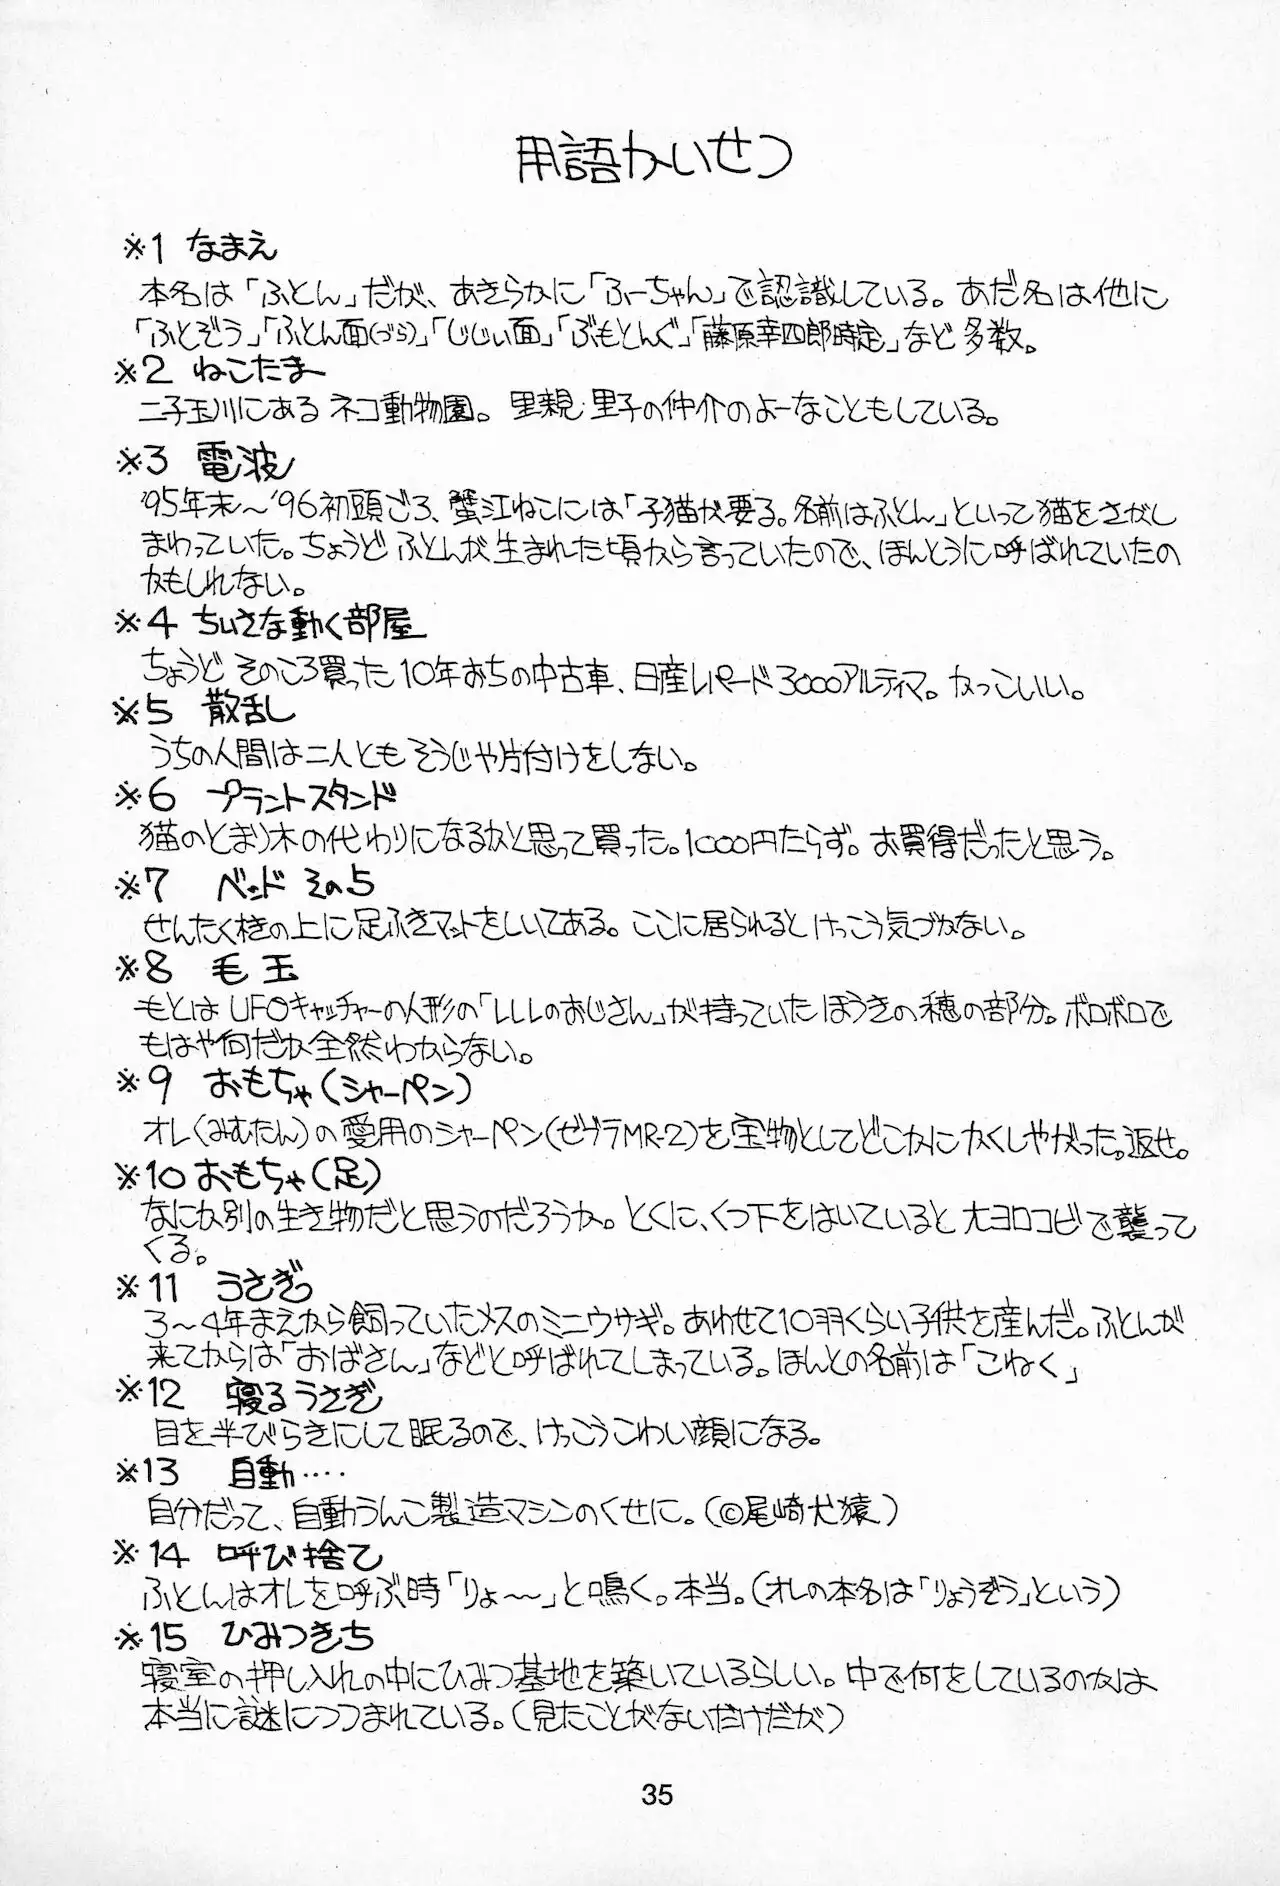 用語かいせつ
※1 なまえ
本名は「ふとん」だが、あきらかに「ふーちゃん」で認識している。あだ名は他に
「ふとぞう」「ふとん面(づら)」「じじぃ面」「ぶもとんぐ」「藤原幸四郎時定」など多数。
※2 ねこたま
二子玉川にあるネコ動物園。里親・里子の仲介のよーなこともしている。
※3 電波
'95年末〜'96初頭ごろ、蟹江ねこには「子猫が要る。名前はふとん」といって猫をさがし
まわっていた。ちょうどふとんが生まれた頃から言っていたので、ほんとうに呼ばれていたの
かもしれない。
※4 ちいさな動く部屋
ちょうどそのころ買った10年おちの中古車、日産レパード3000アルティマ。かっこいい。
※5 散乱
うちの人間は二人ともそうじや片付けをしない。
※6 プラントスタンド
猫のとまり木の代わりになるかと思って買った。1000円たらず。お買得だったと思う。
※7 ベッドその5
せんたく機の上に足ふきマットをしいてある。ここに居られるとけっこう気づかない。
※8 毛玉
もとはUFOキャッチャーの人形の「レレレのおじさん」が持っていたほうきの穂の部分。ボロボロで
もはや何だか全然わからない。
※9 おもちゃ(シャーペン)
オレ(みむたん)の愛用のシャーペン(ゼブラMR-2)を宝物としてどこかにかくしやがった。返せ。
※10 おもちゃ(足)
なにか別の生き物だと思うのだろうか。とくに、くつ下をはいていると大ヨロコビで襲って
くる。
※11 うさぎ
3〜4年まえから飼っていたメスのミニウサギ。あわせて10羽くらい子供を産んだ。ふとんが
来てからは「おばさん」などと呼ばれてしまっている。ほんとの名前は「こねく」
※12 寝るうさぎ
目を半びらきにして眠るので、けっこうこわい顔になる。
※13 自動‥‥
自分だって、自動うんこ製造マシンのくせに。(©尾崎犬猿)
※14 呼び捨て
ふとんはオレを呼ぶ時「りょ〜〜」と鳴く。本当。(オレの本名は「りょうぞう」という)
※15 ひみつきち
寝室の押し入れの中にひみつ基地を築いているらしい。中で何をしているのかは
本当に謎につつまれている。(見たことがないだけだが)
35